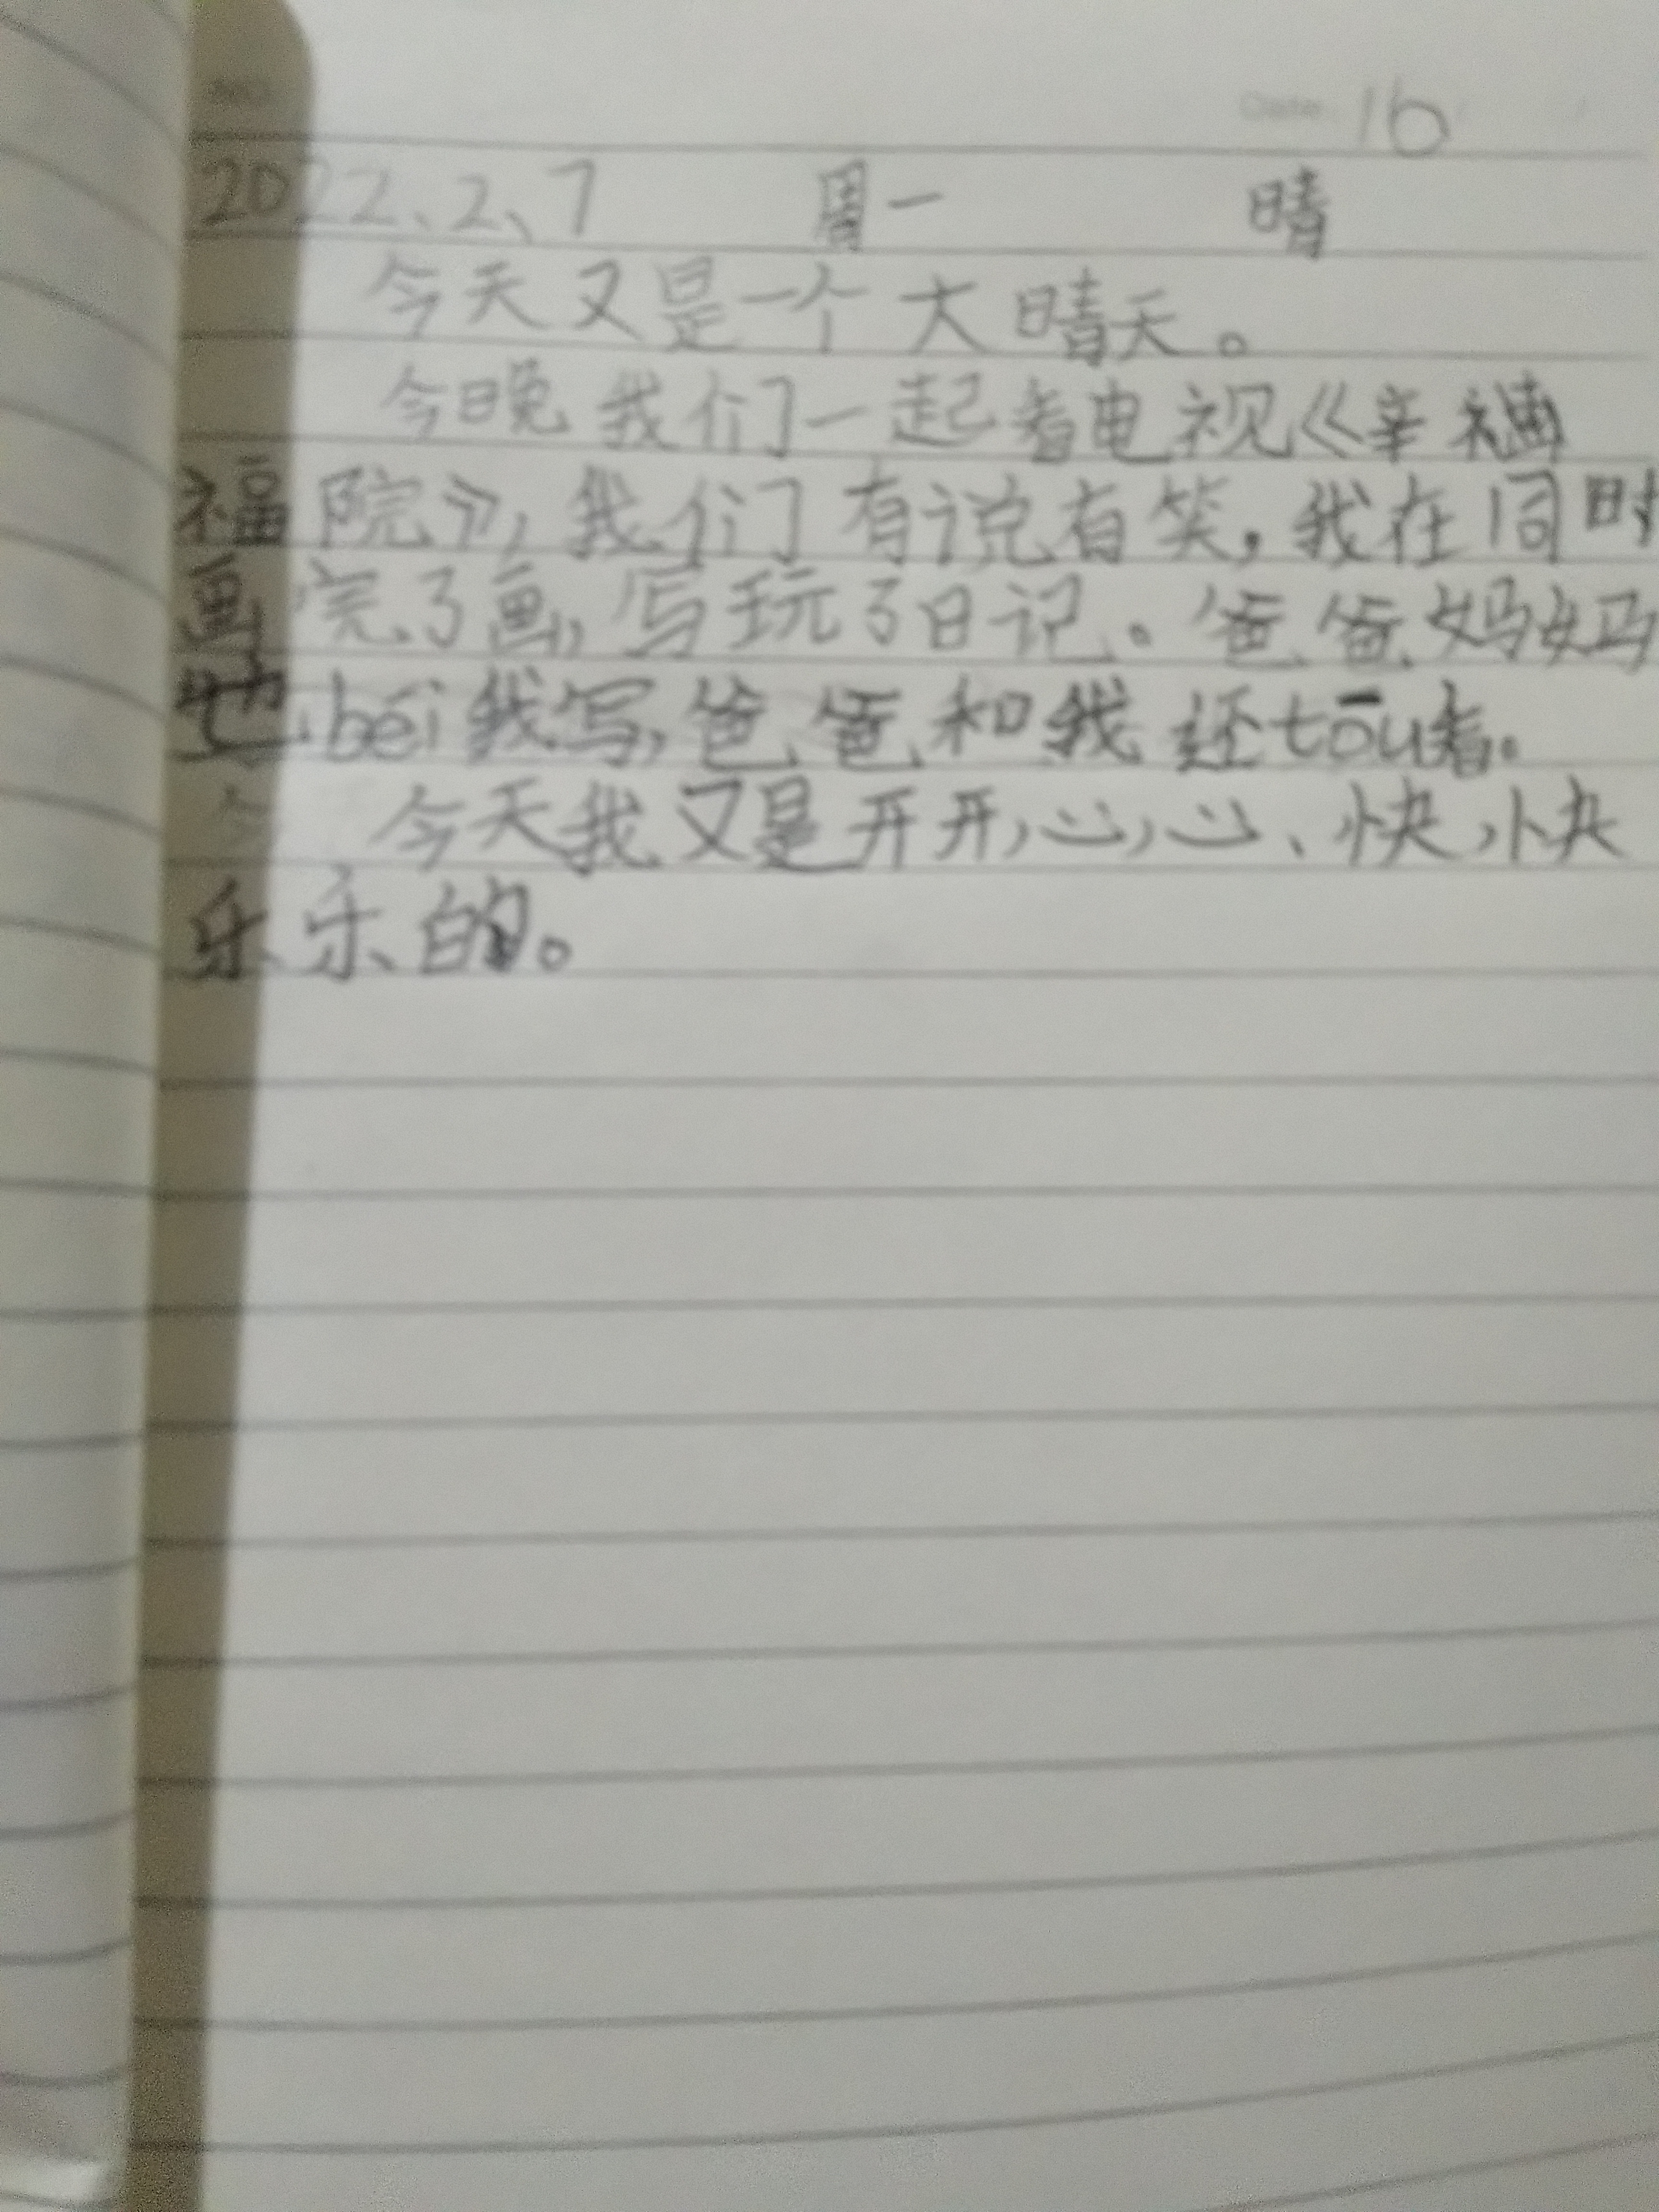 Date: 16
2022、2、7 周一 晴
今天又是一个大晴天。
今晚我们一起看电视《幸
福院》,我们有说有笑,我在同时
画完了画,写玩了日记。爸爸妈妈
也bēi我写,爸爸和我还tōu看。
今 今天我又是开开心心、快快
乐乐的。